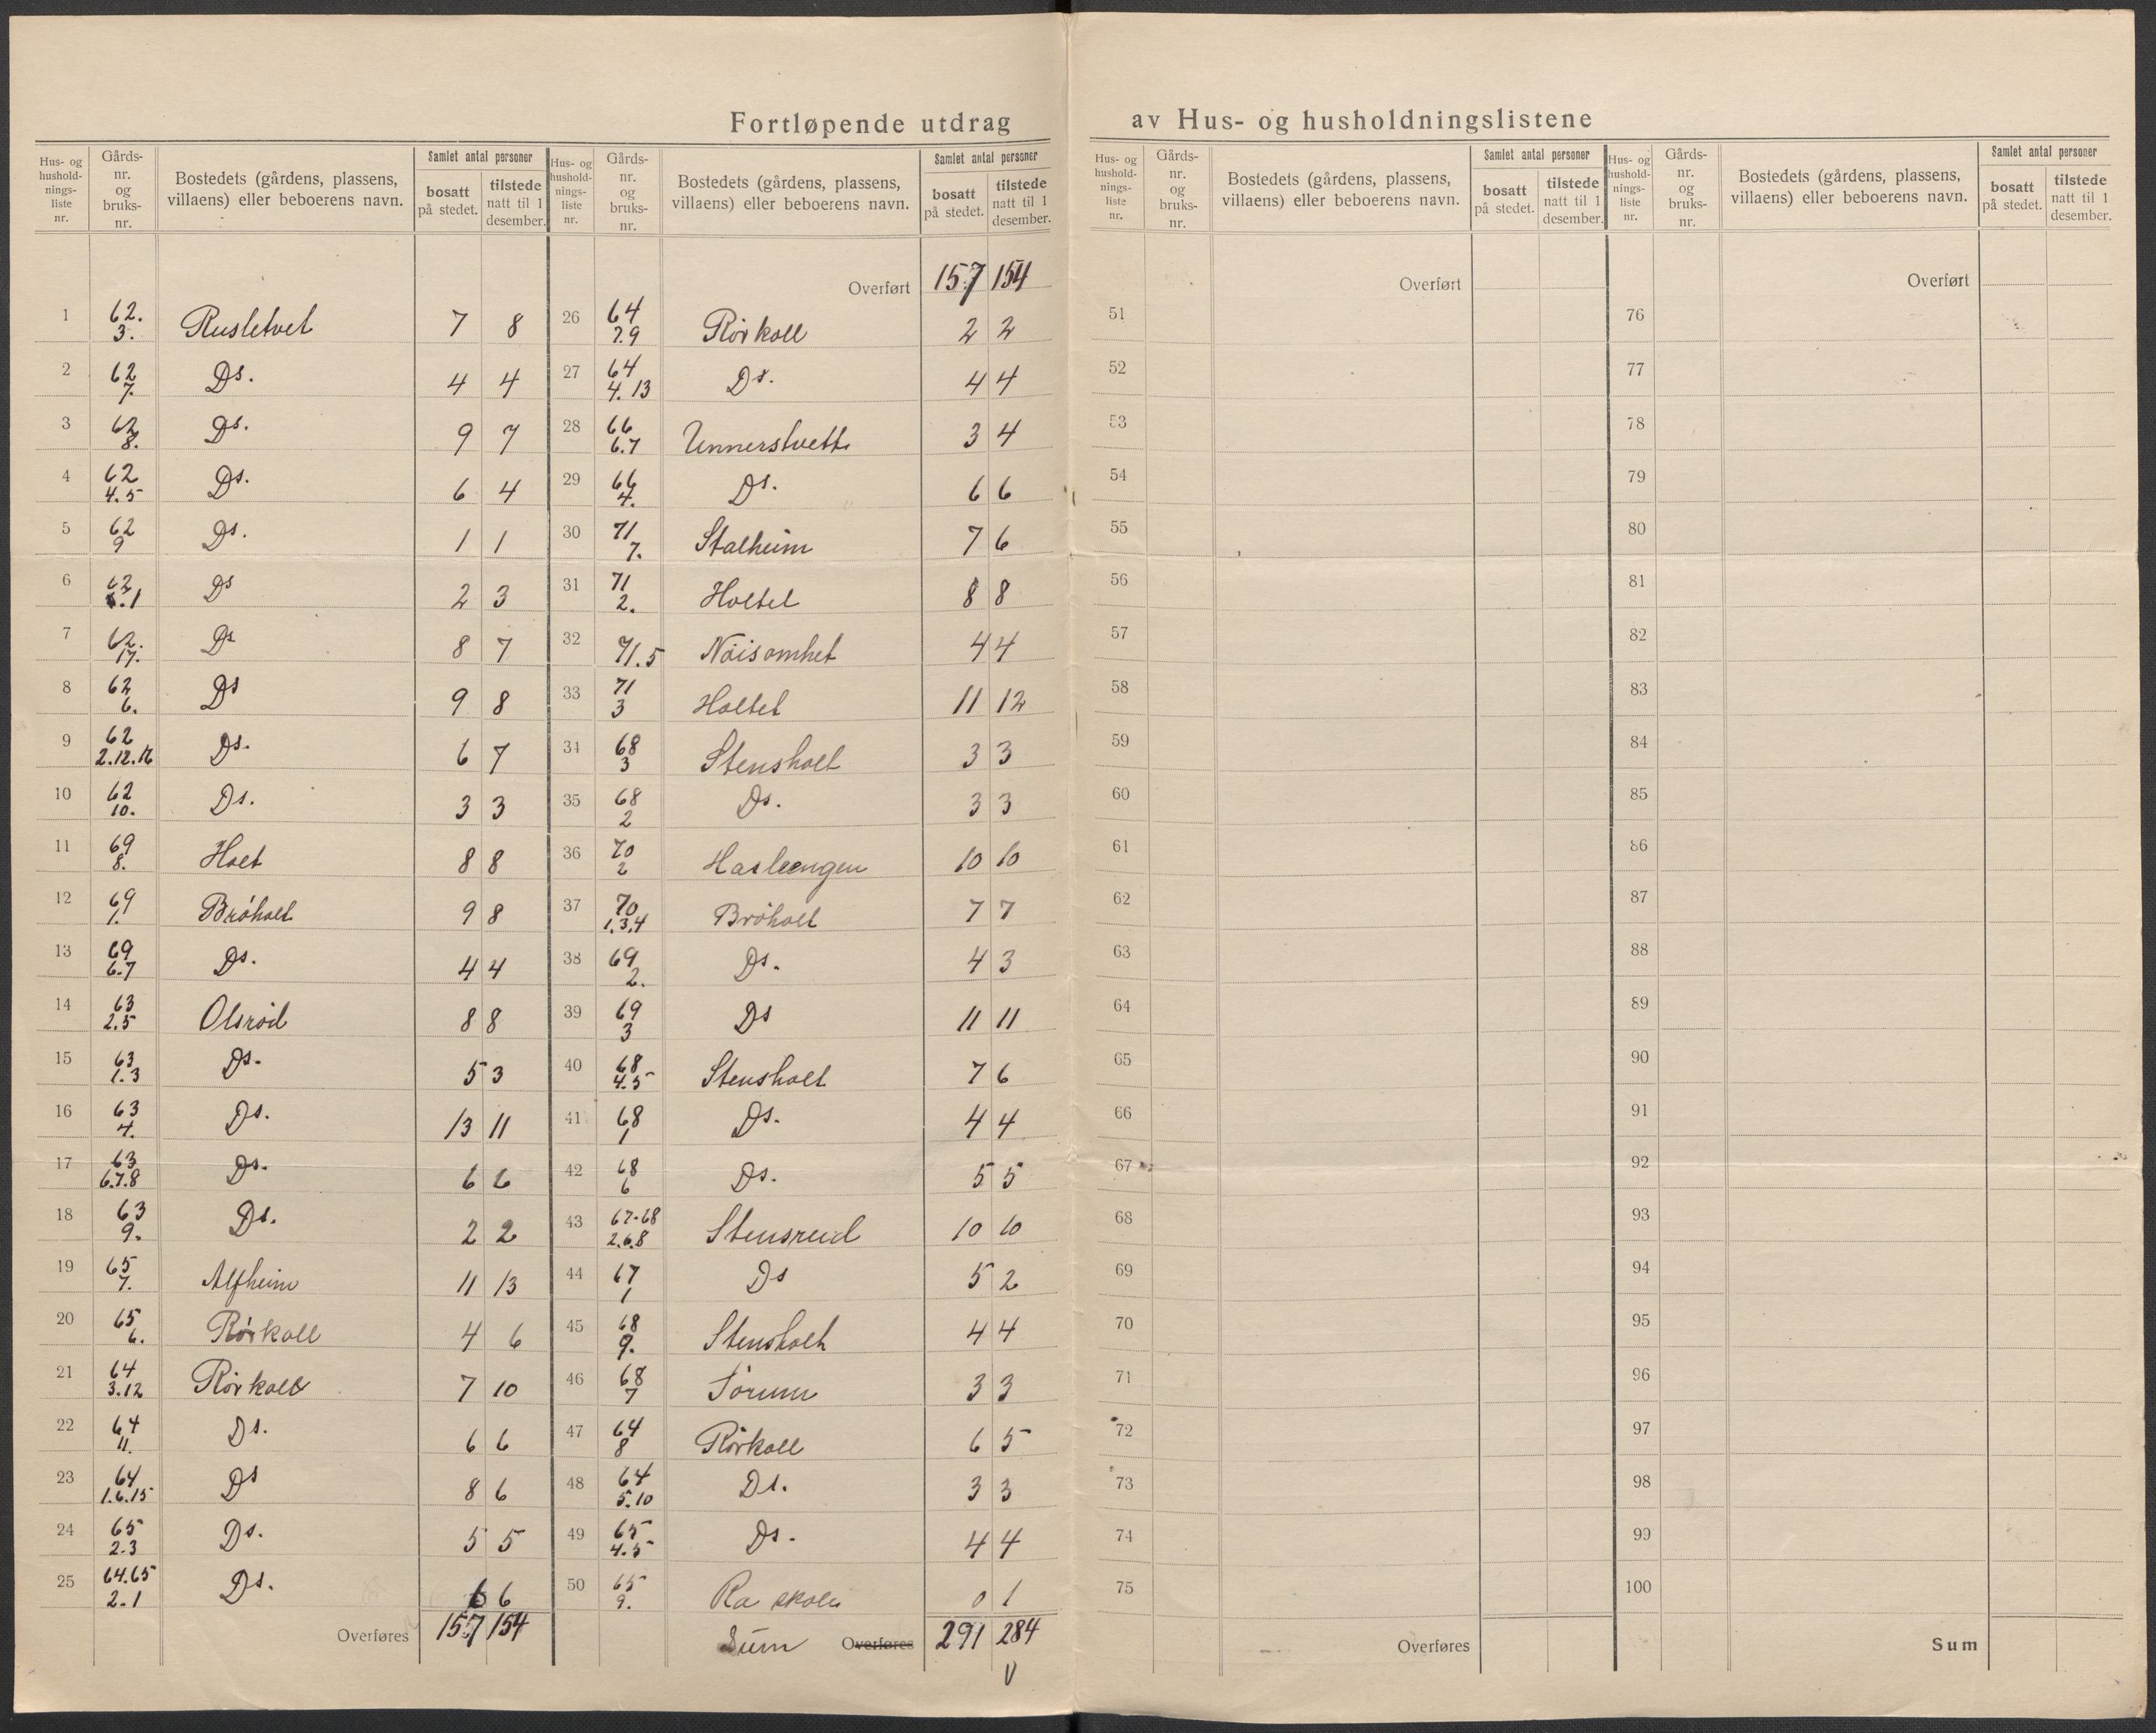 Fortløpende utdrag av Hus- og husholdningslistene
Hus- og husholdnings-liste nr. Gårds-nr. og bruks-nr. Bostedets (gårdens, plassens, villaens) eller beboerens navn. Samlet antal personer bosatt på stedet. tilstede natt til 1 desember.
1 62. 3. Rusletvet 7 8
2 62 7. Ds. 4 4
3 62 8. Ds. 9 7
4 62 4.5 Ds. 6 4
5 62 9 Ds. 1 1
6 62 .1 Ds 2 3
7 62. 17. Ds 8 7
8 62 6. Ds 9 8
9 62 2.12.16 Ds. 6 7
10 62 10. Ds. 3 3
11 69 8. Holt 8 8
12 69 1. Bröholt 9 8
13 69 6.7 Ds. 4 4
14 63 2.5 Olsröd 8 8
15 63 1.3 Ds. 5 3
16 63 4. Ds. 13 11
17 63 6.7.8 Ds. 6 6
18 63 9. Ds. 2 2
19 65 7. Alfheim 11 13
20 65 6. Rörkoll 4 6
21 64 3.12 Rörkoll 7 10
22 64 11. Ds. 6 6
23 64 1.6.15 Ds 8 6
24 65 2.3 Ds. 5 5
25 64.65 2.1 Ds. 6 6
Overføres 157 154
Hus- og husholdnings-liste nr. Gårds-nr. og bruks-nr. Bostedets (gårdens, plassens, villaens) eller beboerens navn. Samlet antal personer bosatt på stedet. tilstede natt til 1 desember.
Overført 157 154
26 64 7.9 Rörkoll 2 2
27 64 4.13 Ds. 4 4
28 66 6.7 Unnerstvett 3 4
29 66 4. Ds. 6 6
30 71 7. Stalheim 7 6
31 71 2. Holtet 8 8
32 71.5 Nöisomhet 4 4
33 71 3 Holtet 11 12
34 68 3 Stensholt 3 3
35 68 2 Ds. 3 3
36 70 2 Hasleengen 10 10
37 70 1.3.4 Bröholt 7 7
38 69 2. Ds. 4 3
39 69 3 Ds 11 11
40 68 4.5 Stensholt 7 6
41 68 1 Ds. 4 4
42 68 6 Ds. 5 5
43 67-68 2.6.8 Stensreid 10 10
44 67 1 Ds 5 2
45 68 9. Stensholt 4 4
46 68 7 Sörum 3 3
47 64 8 Rörkoll 6 5
48 64 5.10 Ds. 3 3
49 65 4.5 Ds. 4 4
50 65 9. Ra skole 0 1
Sum Overføres 291 284
Hus- og husholdnings-liste nr. Gårds-nr. og bruks-nr. Bostedets (gårdens, plassens, villaens) eller beboerens navn. Samlet antal personer bosatt på stedet. tilstede natt til 1 desember.
Overført
51
52
53
54
55
56
57
58
59
60
61
62
63
64
65
66
67
68
69
70
71
72
73
74
75
Overføres
Hus- og husholdnings-liste nr. Gårds-nr. og bruks-nr. Bostedets (gårdens, plassens, villaens) eller beboerens navn. Samlet antal personer bosatt på stedet. tilstede natt til 1 desember.
Overført
76
77
78
79
80
81
82
83
84
85
86
87
88
89
90
91
92
93
94
95
96
97
98
99
100
Sum